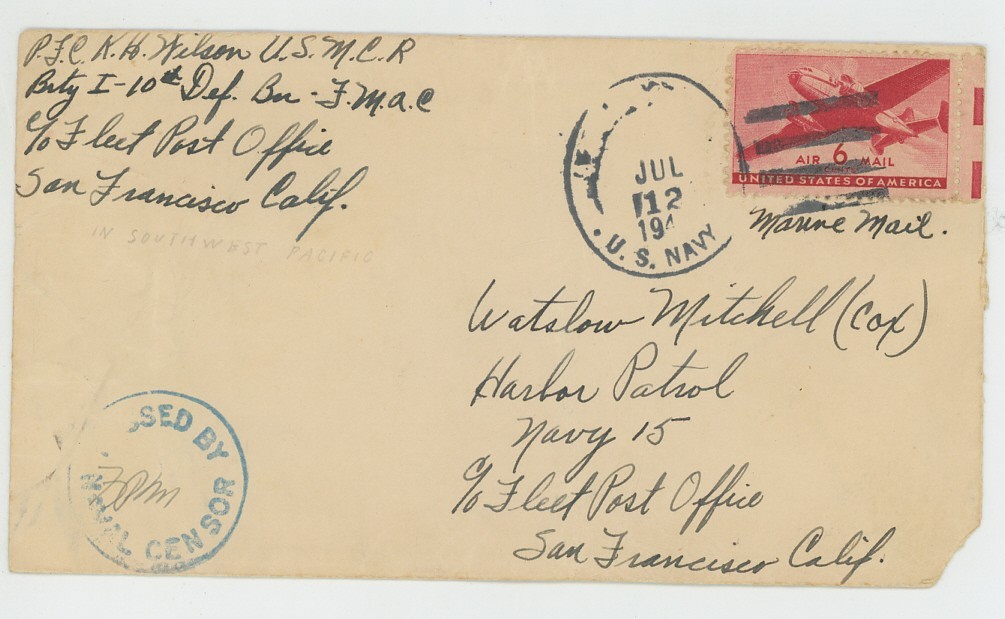 P.F.C. K. H. Wilson U.S.M.C.R
Bity I-10th Def. Bn - F.M.a.c
c/o Fleet Post Office
San Francisco Calif.
IN SOUTHWEST PACIFIC
JUL
12
194
U. S. NAVY
AIR 6 MAIL
CENTS
UNITED STATES OF AMERICA
Marine Mail.
Watslow Mitchell (Cox)
Harbor Patrol
Navy 15
c/o Fleet Post Office
San Francisco Calif.
SED BY
NAVAL CENSOR